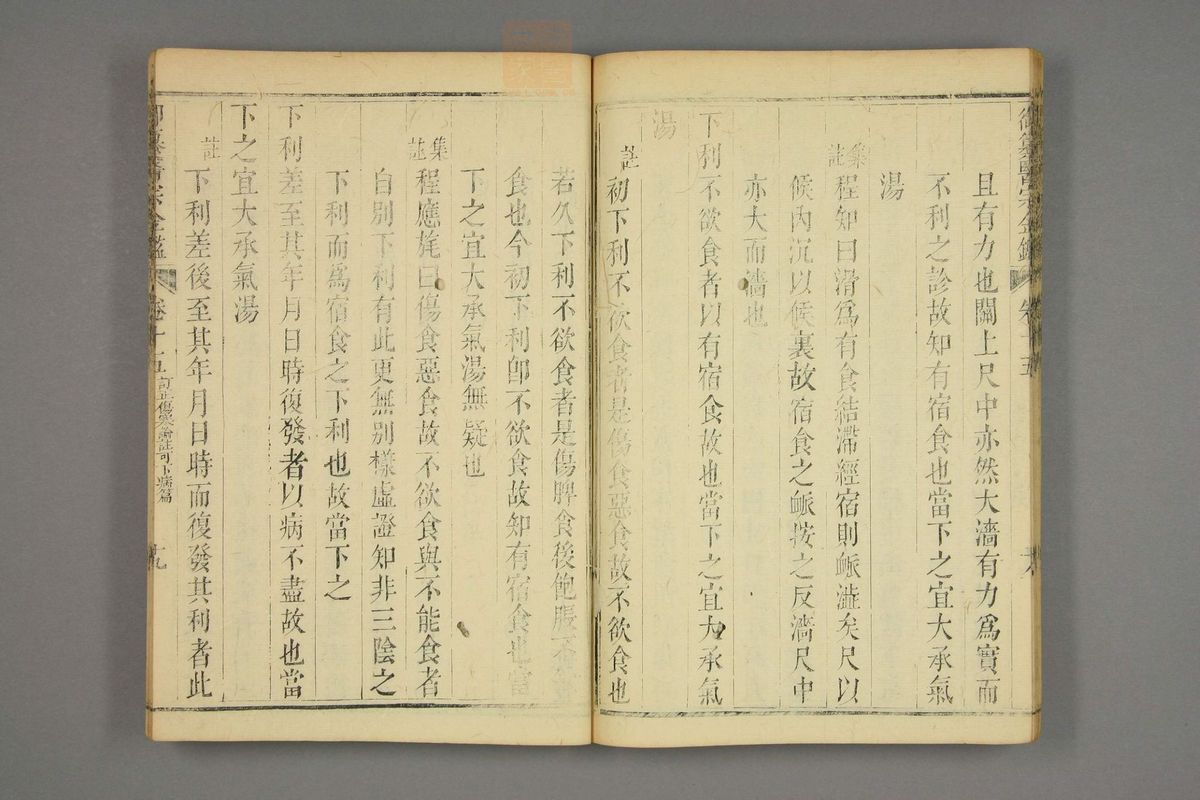 御纂醫宗金鑑 卷十五
且有力也關上尺中亦然大濇有力爲實而
不利之診故知有宿食也當下之宜大承氣
湯
集註 程知曰滑爲有食結滯經宿則脈澁矣尺以
候內沉以候裏故宿食之脈按之反濇尺中
亦大而濇也
下利不欲食者以有宿食故也當下之宜大承氣
湯
註 初下利不欲食者是傷食惡食故不欲食也
若久下利不欲食者是傷脾食後飽脹不
食也今初下利卽不欲食故知有宿食也當
下之宜大承氣湯無疑也
集註 程應旄曰傷食惡食故不欲食與不能食者
自別下利有此更無別樣虛證知非三陰之
下利而爲宿食之下利也故當下之
下利差至其年月日時復發者以病不盡故也當
下之宜大承氣湯
註 下利差後至其年月日時而復發其利者此
御纂醫宗金鑑 卷十五 訂正傷寒論註可下病篇 十九